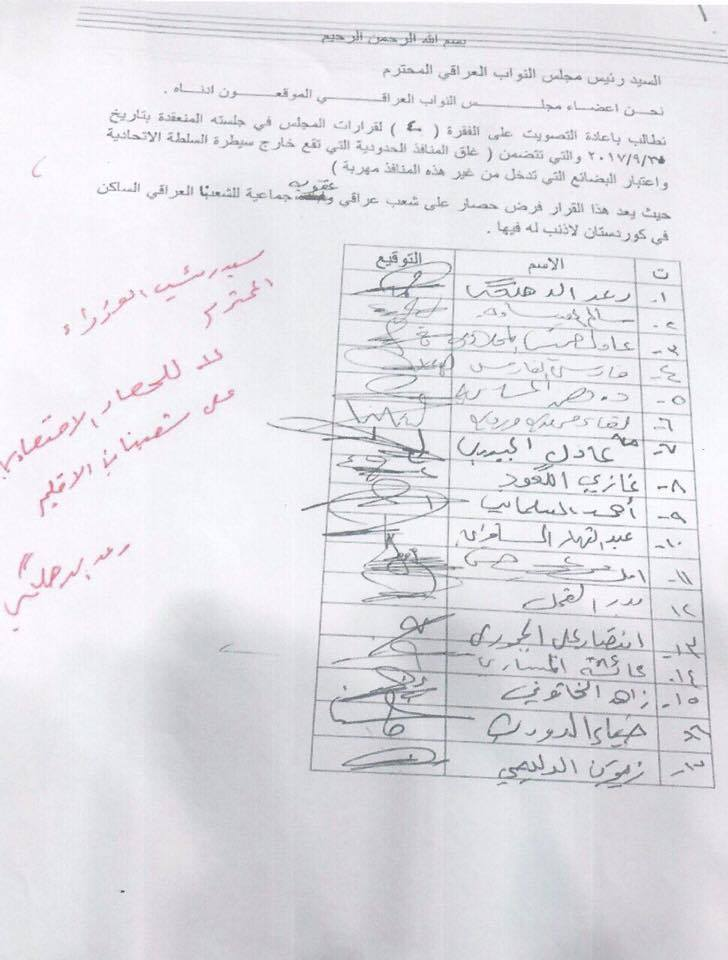 ١
بسم الله الرحمن الرحيم
السيد رئيس مجلس النواب العراقي المحترم
نحن اعضاء مجلس النواب العراقي الموقعون ادناه .
نطالب باعادة التصويت على الفقرة ( ٤ ) لقرارات المجلس في جلسته المنعقدة بتاريخ
٢٠١٧/٩/٢٥ والتي تتضمن ( غلق المنافذ الحدودية التي تقع خارج سيطرة السلطة الاتحادية
واعتبار البضائع التي تدخل من غير هذه المنافذ مهربة )
حيث يعد هذا القرار فرض حصار على شعب عراقي و عقوبة جماعية للشعب العراقي الساكن
في كوردستان لاذنب له فيها .
ت الاسم التوقيع
١. رعد الدهلكي
٢-
٣- عادل خميس المحلاوي
٤- فارس الفارس
٥- د.
٦- لقاء
٧- عادل
٨- غازي الكعود
٩- أحمد السلماني
١٠- عبد القهار السامرائي
١١- امل
١٢ بدر الفحل
١٣- انتصار علي الجبوري
١٤- عائشة المساري
١٥- زاهد الخاتوني
١٦ ضياء الدوري
١٧- زيتون الدليمي
سيد رئيس الوزراء
المحترم
كلا للحصار الاقتصادي
على شعبنا في الاقليم
رعد الدهلكي